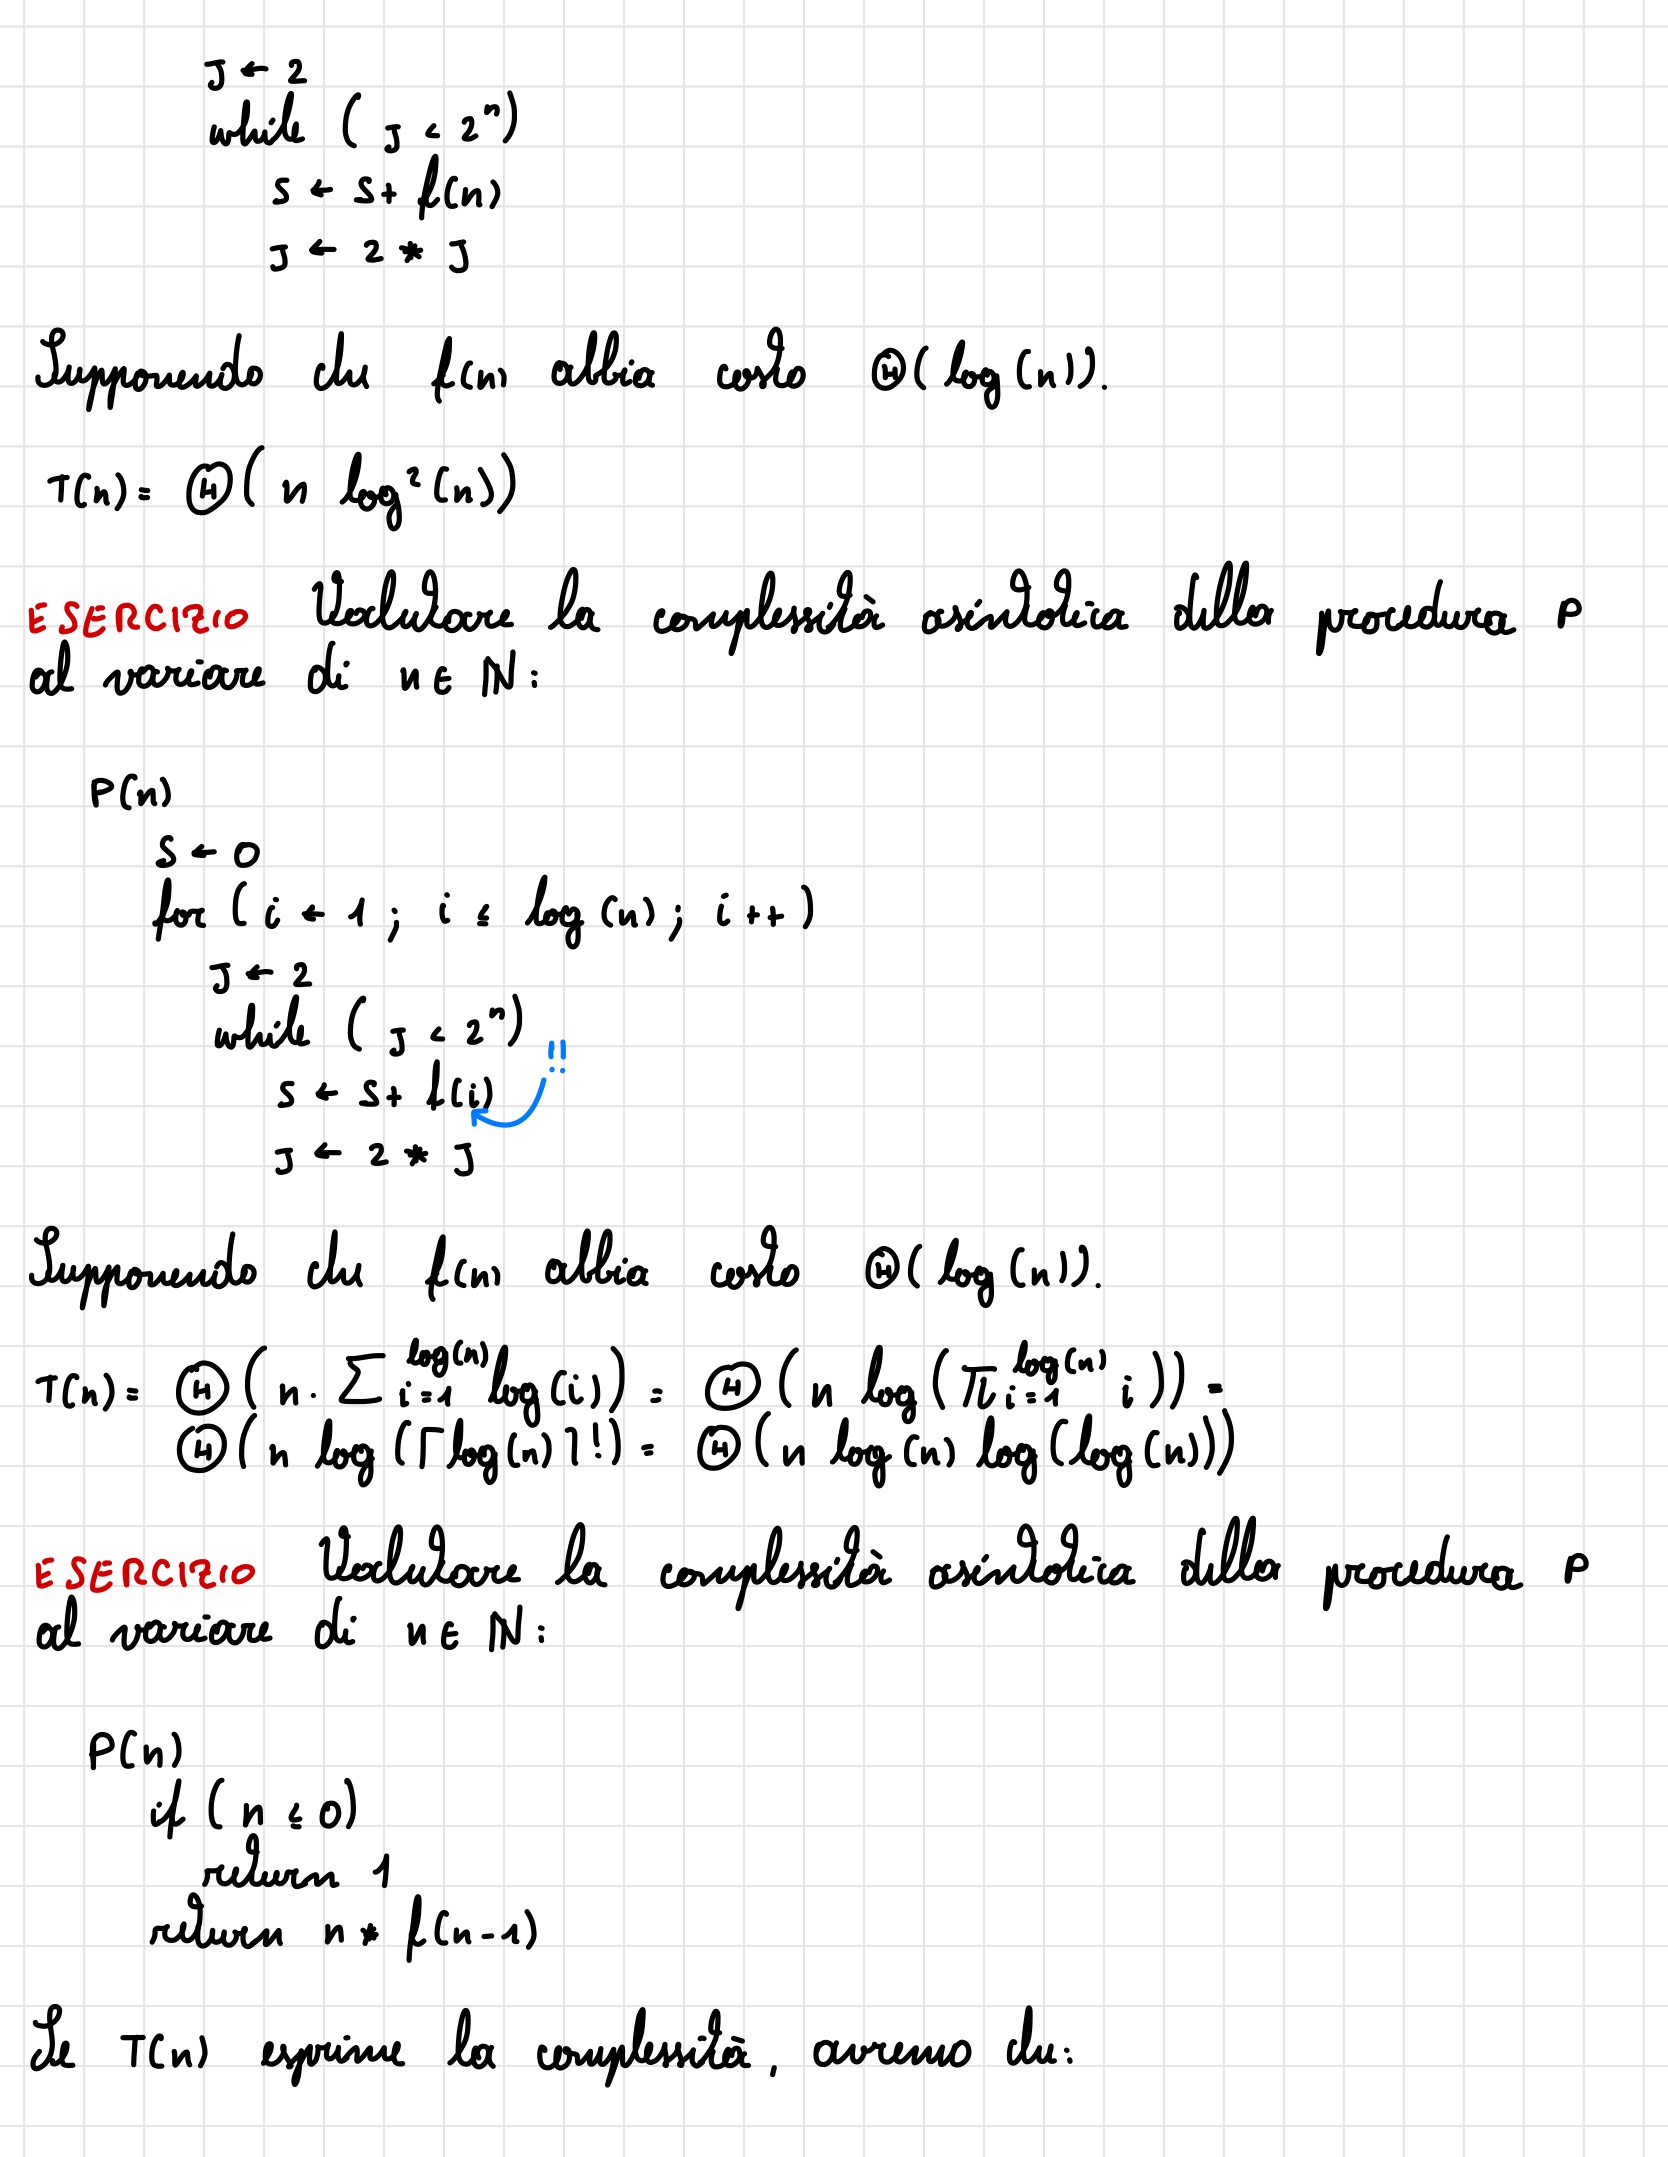 J ← 2
while ( J < 2ⁿ)
S ← S + f(n)
J ← 2 * J
Supponendo che f(n) abbia costo Θ( log (n)).
T(n) = Θ( n log² (n))
ESERCIZIO Valutare la complessità asintotica della procedura P
al variare di n ∈ ℕ:
P(n)
S ← 0
for ( i ← 1 ; i ≤ log (n) ; i ++ )
J ← 2
while ( J < 2ⁿ)
!!
S ← S + f(i)
J ← 2 * J
Supponendo che f(n) abbia costo Θ( log (n)).
T(n) = Θ( n · ∑_{i=1}^{log(n)} log (i)) = Θ( n log ( π_{i=1}^{log(n)} i )) =
Θ( n log (⌈log(n)⌉!) = Θ( n log (n) log (log (n)))
ESERCIZIO Valutare la complessità asintotica della procedura P
al variare di n ∈ ℕ:
P(n)
if ( n ≤ 0)
return 1
return n * f(n-1)
Se T(n) esprime la complessità, avremo che: